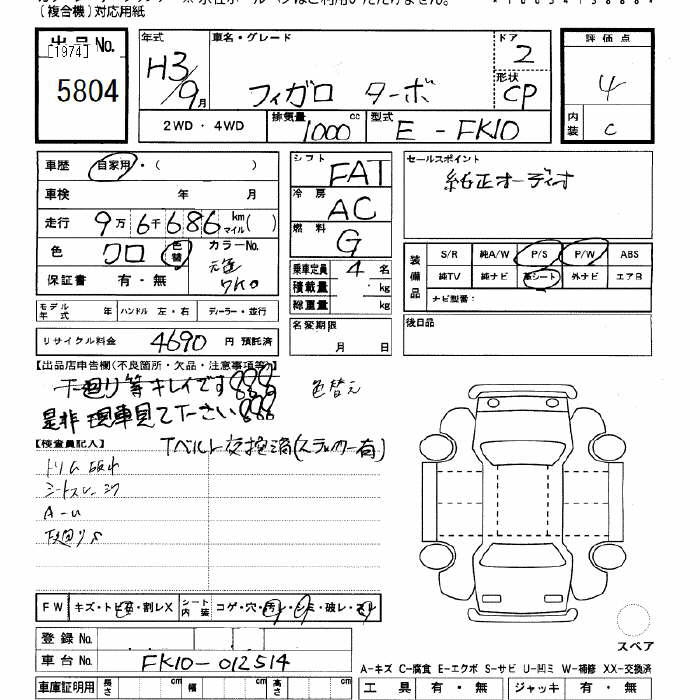 (複合機)対応用紙
出品No.
[1974]
5804
年式 H3/9月
車名・グレード フィガロ ターボ
ドア 2
形状 CP
評価点 4
内装 C
2WD・4WD
排気量 1000 cc
型式 E-FK10
車歴 自家用・( )
車検 年 月
走行 9万6千686 km マイル( )
色 クロ 色替 カラーNo.
保証書 有・無
シフト FAT
冷房 AC
燃料 G
乗車定員 4名
積載量 kg
総重量 kg
名変期限 月 日
セールスポイント
純正オーディオ
装備品 S/R 純A/W P/S P/W ABS
純TV 純ナビ 革シート 外ナビ エアB
ナビ型番:
後日品
モデル年式 年 ハンドル 左・右 ディーラー・並行
リサイクル料金 4690 円 預託済
【出品店申告欄(不良箇所・欠品・注意事項等)】
下廻り等キレイです!!! 色替え
是非 現車見て下さい!!!
Tベルト交換済(ステッカー有)
【検査員記入】
A-U
FW キズ・トビ石・割レX シート内装 コゲ・穴・汚レ・シミ・破レ・スレ
登録No.
車台No. FK10-012514
スペア
A-キズ C-腐食 E-エクボ S-サビ U-凹ミ W-補修 XX-交換済
車庫証明用 長さ cm 幅 cm 高さ cm 工具 有・無 ジャッキ 有・無